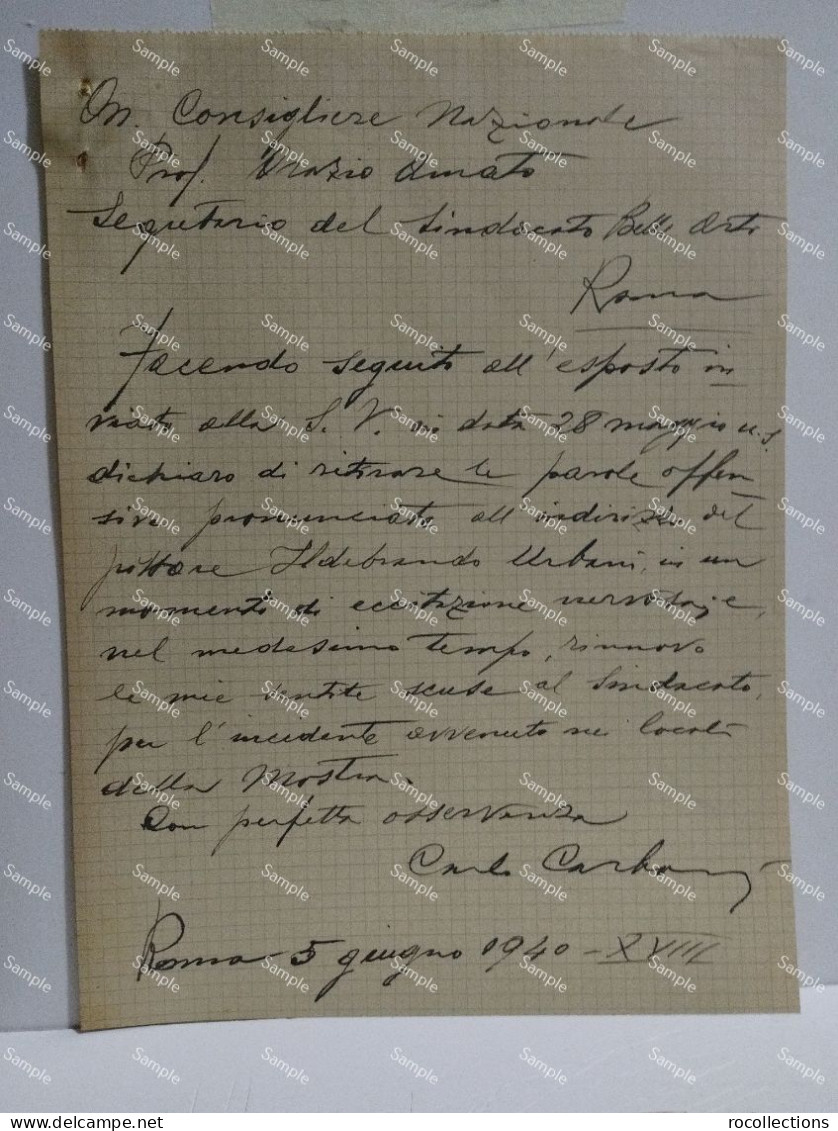 On. Consigliere Nazionale
Prof. Orazio Amato
Segretario del Sindacato Belle Arti
Roma
Facendo seguito all'esposto in
viato alla S. V. in data 28 maggio u.s.
dichiaro di ritirare le parole offen
sive pronunciate all'indirizzo del
pittore Ildebrando Urbani, in un
momento di eccitazione nervosa, e,
nel medesimo tempo, rinnovo
le mie sentite scuse al Sindacato,
per l'incidente avvenuto nei locali
della Mostra.
Con perfetta osservanza
Carlo
Roma 5 giugno 1940 - XVIII
rocollections